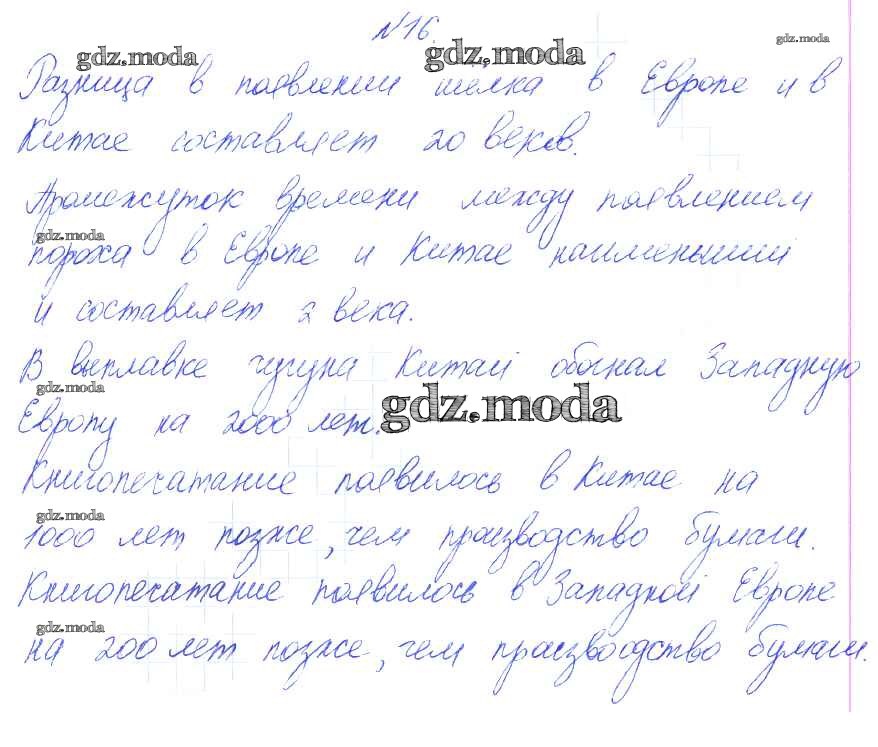 №16.
gdz.moda gdz.moda gdz.moda
Разница в появлении шёлка в Европе и в
Китае составляет 20 веков.
Промежуток времени между появлением
gdz.moda
пороха в Европе и Китае наименьший
и составляет 2 века.
В выплавке чугуна Китай обогнал Западную
gdz.moda gdz.moda
Европу на 2000 лет.
Книгопечатание появилось в Китае на
gdz.moda
1000 лет позже, чем производство бумаги.
Книгопечатание появилось в Западной Европе
gdz.moda
на 200 лет позже, чем производство бумаги.